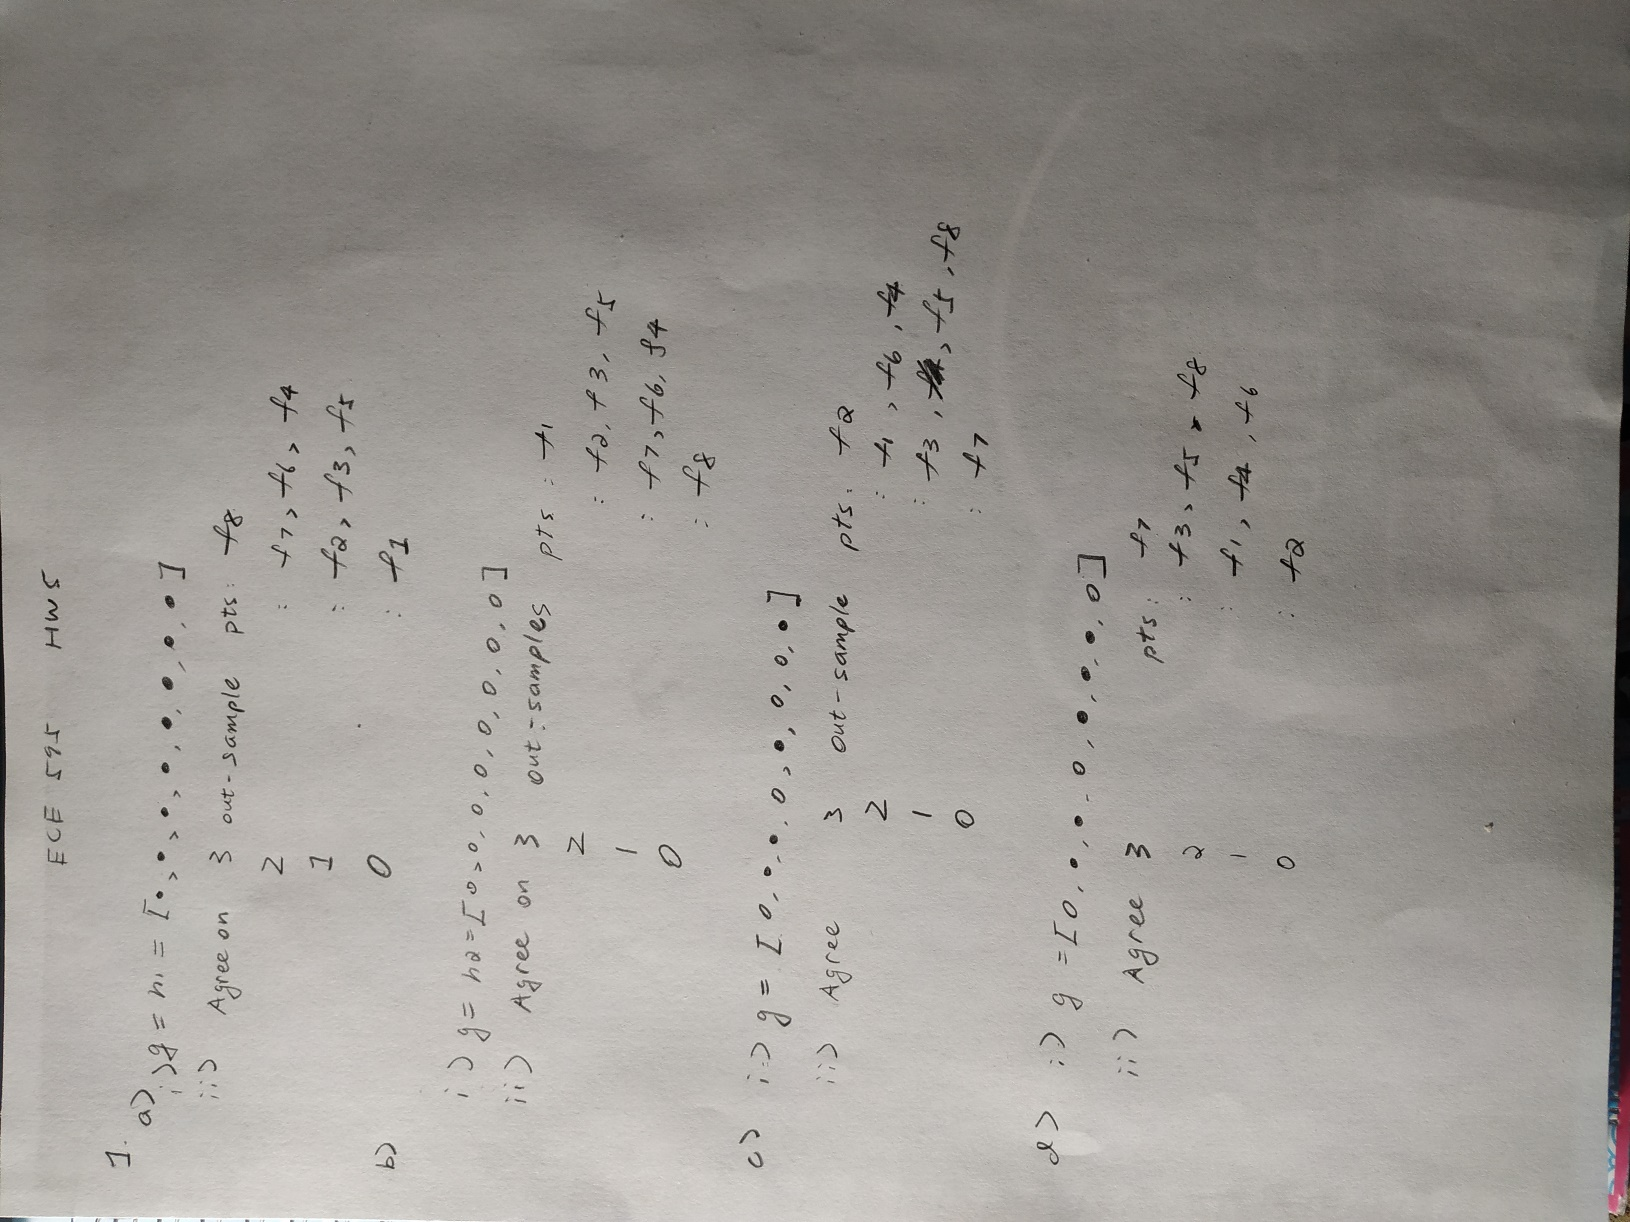 ECE 595 HW5
1. a)
i) g = h1 = [•, •, •, •, •, •, •, •]
ii) Agree on 3 out-sample pts: f8
2 : f7, f6, f4
1 : f2, f3, f5
0 : f1
b) i) g = h2 = [0, 0, 0, 0, 0, 0, 0, 0]
ii) Agree on 3 out-samples pts: f1
2 : f2, f3, f5
1 : f7, f6, f4
0 : f8
c) i) g = [0, •, •, 0, •, 0, 0, •]
ii) Agree 3 out-sample pts: f2
2 : f1, f6, f4
1 : f3, f5, f8
0 : f7
d) i) g = [0, •, •, 0, •, •, •, 0]
ii) Agree 3 pts: f7
2 : f3, f5, f8
1 : f1, f4, f6
0 : f2